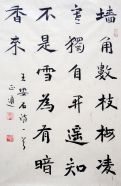 墙角數枝梅凌
寒獨自开遥知
不是雪为有暗
香来
王安石诗一首